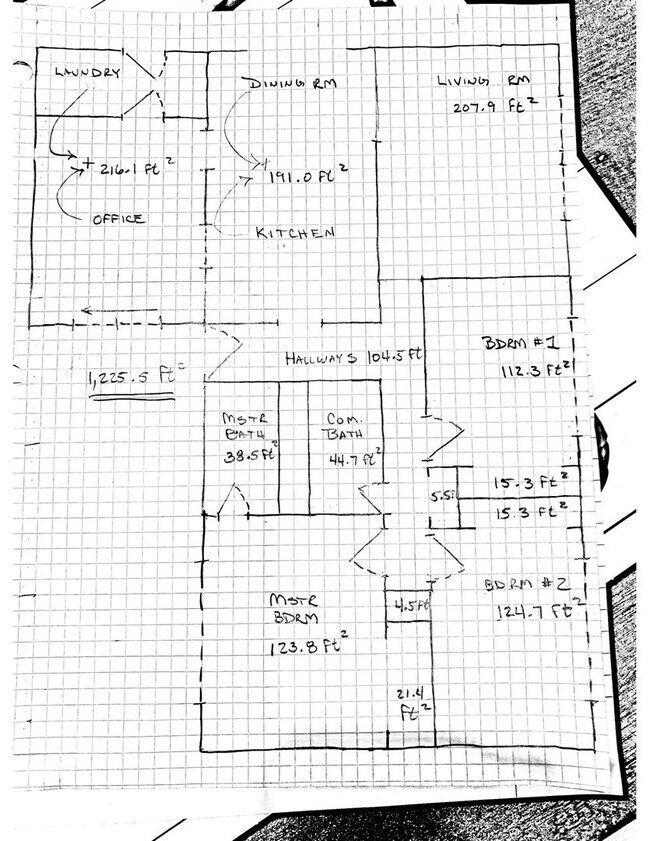 LAUNDRY
DINING RM
LIVING RM
207.9 Ft²
+ 216.1 Ft²
+ 191.0 Ft²
OFFICE
KITCHEN
HALLWAYS 104.5 ft
BDRM #1
112.3 Ft²
1,225.5 Ft²
MSTR
BATH
38.5 Ft²
COM.
BATH
44.7 Ft²
5.5
15.3 Ft²
15.3 Ft²
MSTR
BDRM
123.8 Ft²
4.5 Ft
BDRM #2
124.7 Ft²
21.4
Ft²